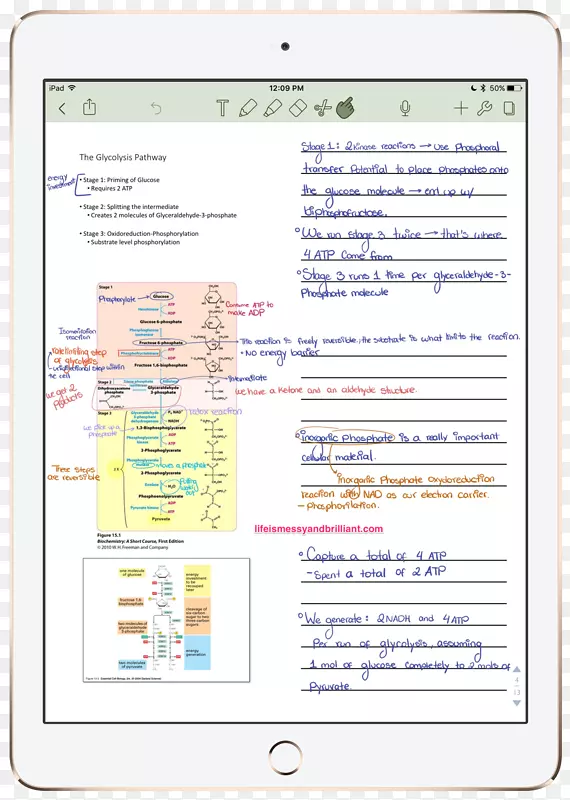 iPad
12:09 PM
50%
The Glycolysis Pathway
energy
investment
• Stage 1: Priming of Glucose
• Requires 2 ATP
• Stage 2: Splitting the intermediate
• Creates 2 molecules of Glyceraldehyde-3-phosphate
• Stage 3: Oxidoreduction-Phosphorylation
• Substrate level phosphorylation
Stage 1
Phosphorylate
Glucose
ATP
Hexokinase
ADP
Glucose 6-phosphate
Consume ATP to
make ADP
Isomerization
reaction
Phosphoglucose
isomerase
Fructose 6-phosphate
ATP
Phosphofructokinase
ADP
Fructose 1,6-bisphosphate
of glycolysis
the cell
Intermediate
Stage 2
Dihydroxyacetone
phosphate
Glyceraldehyde
3-phosphate
we get 2
products
Stage 3
Glyceraldehyde
3-phosphate
dehydrogenase
Pi, NAD+
NADH
redox reaction
we pick up a
phosphate
1,3-Bisphosphoglycerate
Phosphoglycerate
kinase
ADP
ATP
3-Phosphoglycerate
Phosphoglycerate
mutase
moves a phosphate
2-Phosphoglycerate
Enolase
H2O
Pulling
water
out
Phosphoenolpyruvate
Pyruvate
kinase
ADP
ATP
Pyruvate
These steps
are reversible
Figure 15.1
Biochemistry: A Short Course, First Edition
© 2010 W. H. Freeman and Company
one molecule
of glucose
energy
investment
to be
recouped
later
fructose 1,6-
bisphosphate
cleavage of
six-carbon
sugar to two
three-carbon
sugars
two molecules of
glyceraldehyde
3-phosphate
energy
generation
two molecules
of pyruvate
Stage 1: 2 kinase reactions → use Phosphoral
transfer Potential to place phosphates onto
the glucose molecule → end up w/
biphosphofructose.
We run stage 3 twice → that's where
4 ATP come from
Stage 3 runs 1 time per glyceraldehyde-3-
Phosphate molecule
The reaction is freely reversible, the substrate is what limits the reaction.
• No energy barrier
we have a Ketone and an aldehyde structure.
inorganic Phosphate is a really important
cellular material.
inorganic Phosphate oxydoreduction
reaction with NAD as our electron carrier.
- Phosphorilation.
lifeismessyandbrilliant.com
Capture a total of 4 ATP
- Spent a total of 2 ATP
We generate: 2NADH and 4ATP
Per run of glycolysis, assuming
1 mol of glucose completely to 2 mols of
Pyruvate.